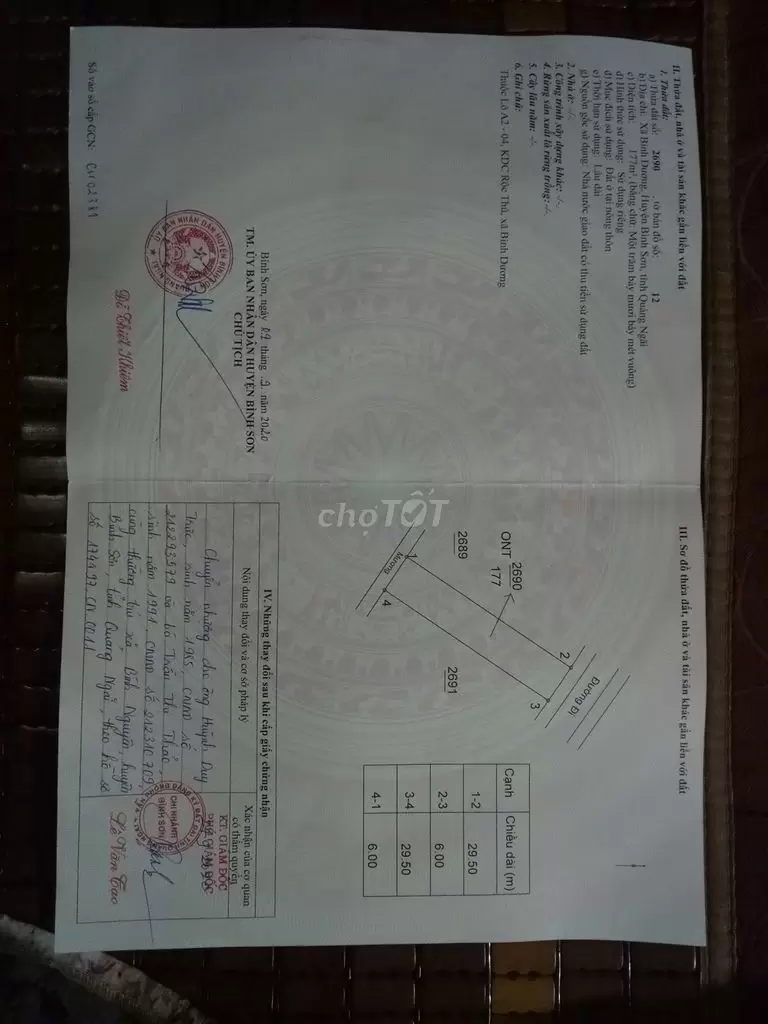 II. Thửa đất, nhà ở và tài sản khác gắn liền với đất
1. Thửa đất:
a) Thửa đất số: 2690 , tờ bản đồ số: 12
b) Địa chỉ: Xã Bình Dương, Huyện Bình Sơn, tỉnh Quảng Ngãi
c) Diện tích: 177m², (bằng chữ: Một trăm bảy mươi bảy mét vuông)
d) Hình thức sử dụng: Sử dụng riêng
đ) Mục đích sử dụng: Đất ở tại nông thôn
e) Thời hạn sử dụng: Lâu dài
g) Nguồn gốc sử dụng: Nhà nước giao đất có thu tiền sử dụng đất
2. Nhà ở: -/-.
3. Công trình xây dựng khác: -/-.
4. Rừng sản xuất là rừng trồng: -/-.
5. Cây lâu năm: -/-.
6. Ghi chú:
Thuộc Lô A2 - 04, KDC Rộc Thú, xã Bình Dương
Bình Sơn, ngày 27 tháng 9 năm 2020
TM. ỦY BAN NHÂN DÂN HUYỆN BÌNH SƠN
CHỦ TỊCH
ỦY BAN NHÂN DÂN HUYỆN BÌNH SƠN
Đỗ Thiết Khiêm
Số vào sổ cấp GCN: CH02381
III. Sơ đồ thửa đất, nhà ở và tài sản khác gắn liền với đất
Đường Đi
2
3
ONT 2690
177
2689
2691
1
4
Mương
Cạnh Chiều dài (m)
1-2 29.50
2-3 6.00
3-4 29.50
4-1 6.00
chợTỐT
IV. Những thay đổi sau khi cấp giấy chứng nhận
Nội dung thay đổi và cơ sở pháp lý
Xác nhận của cơ quan
có thẩm quyền
Chuyển nhượng cho ông Huỳnh Duy
Trúc, sinh năm 1985, CMND số
212293579 và bà Trần Thị Thảo,
sinh năm 1991, CMND số 212310709
cùng thường trú xã Bình Nguyên, huyện
Bình Sơn, tỉnh Quảng Ngãi, theo hồ sơ
số 174497.CN.0011
KT. GIÁM ĐỐC
PHÓ GIÁM ĐỐC
CHI NHÁNH
BÌNH SƠN
Lê Văn Tao